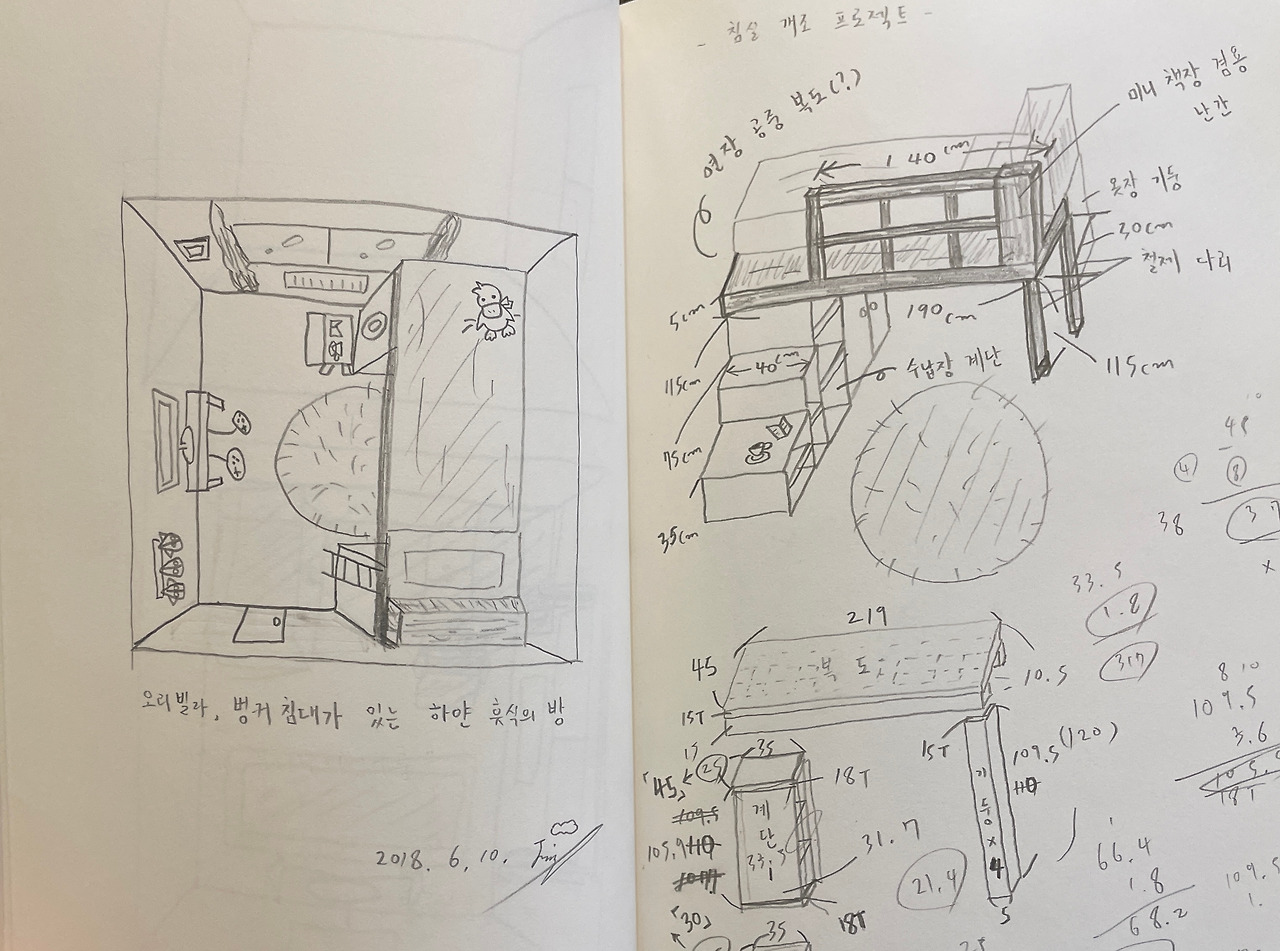 오리빌라, 벙커 침대가 있는 하얀 휴식의 방
2018. 6. 10.
- 침실 개조 프로젝트 -
연장 공중 복도(?)
미니 책장 겸용
난간
140cm
옷장 기둥
30cm
철제 다리
5cm
190cm
115cm
115cm
40cm
수납장 계단
75cm
35cm
48
④ ⑧
38 37
33.5
1.8
317
219
45
복도
10.5
15T
15
15T
109.5(120)
110
기둥x4
5
35
25
「45」
18T
109.5
105.9 110
계단
33.5
31.7
21.4
18T
「30」
35
810
109.5
3.6
105.9
18T
66.4
1.8
68.2
109.5
1.